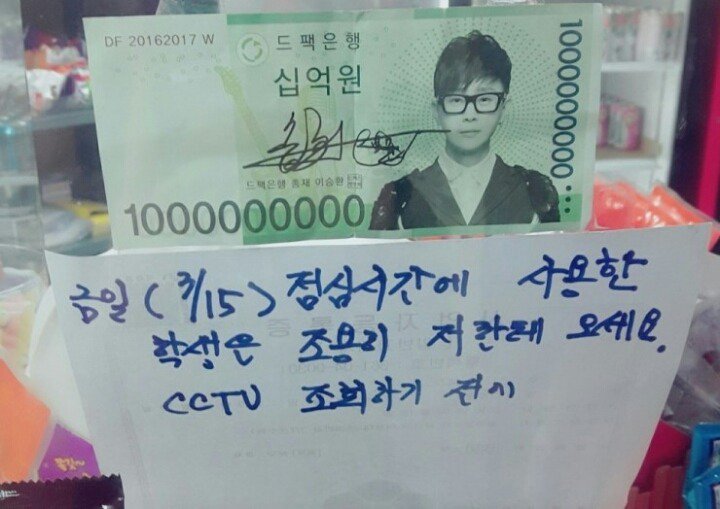 DF 20162017 W
드팩은행
십억원
드팩은행 총재 이승환
1000000000
1000000000
금일 (3/15) 점심시간에 사용한
학생은 조용히 저한테 오세요.
CCTV 조회하기 전에